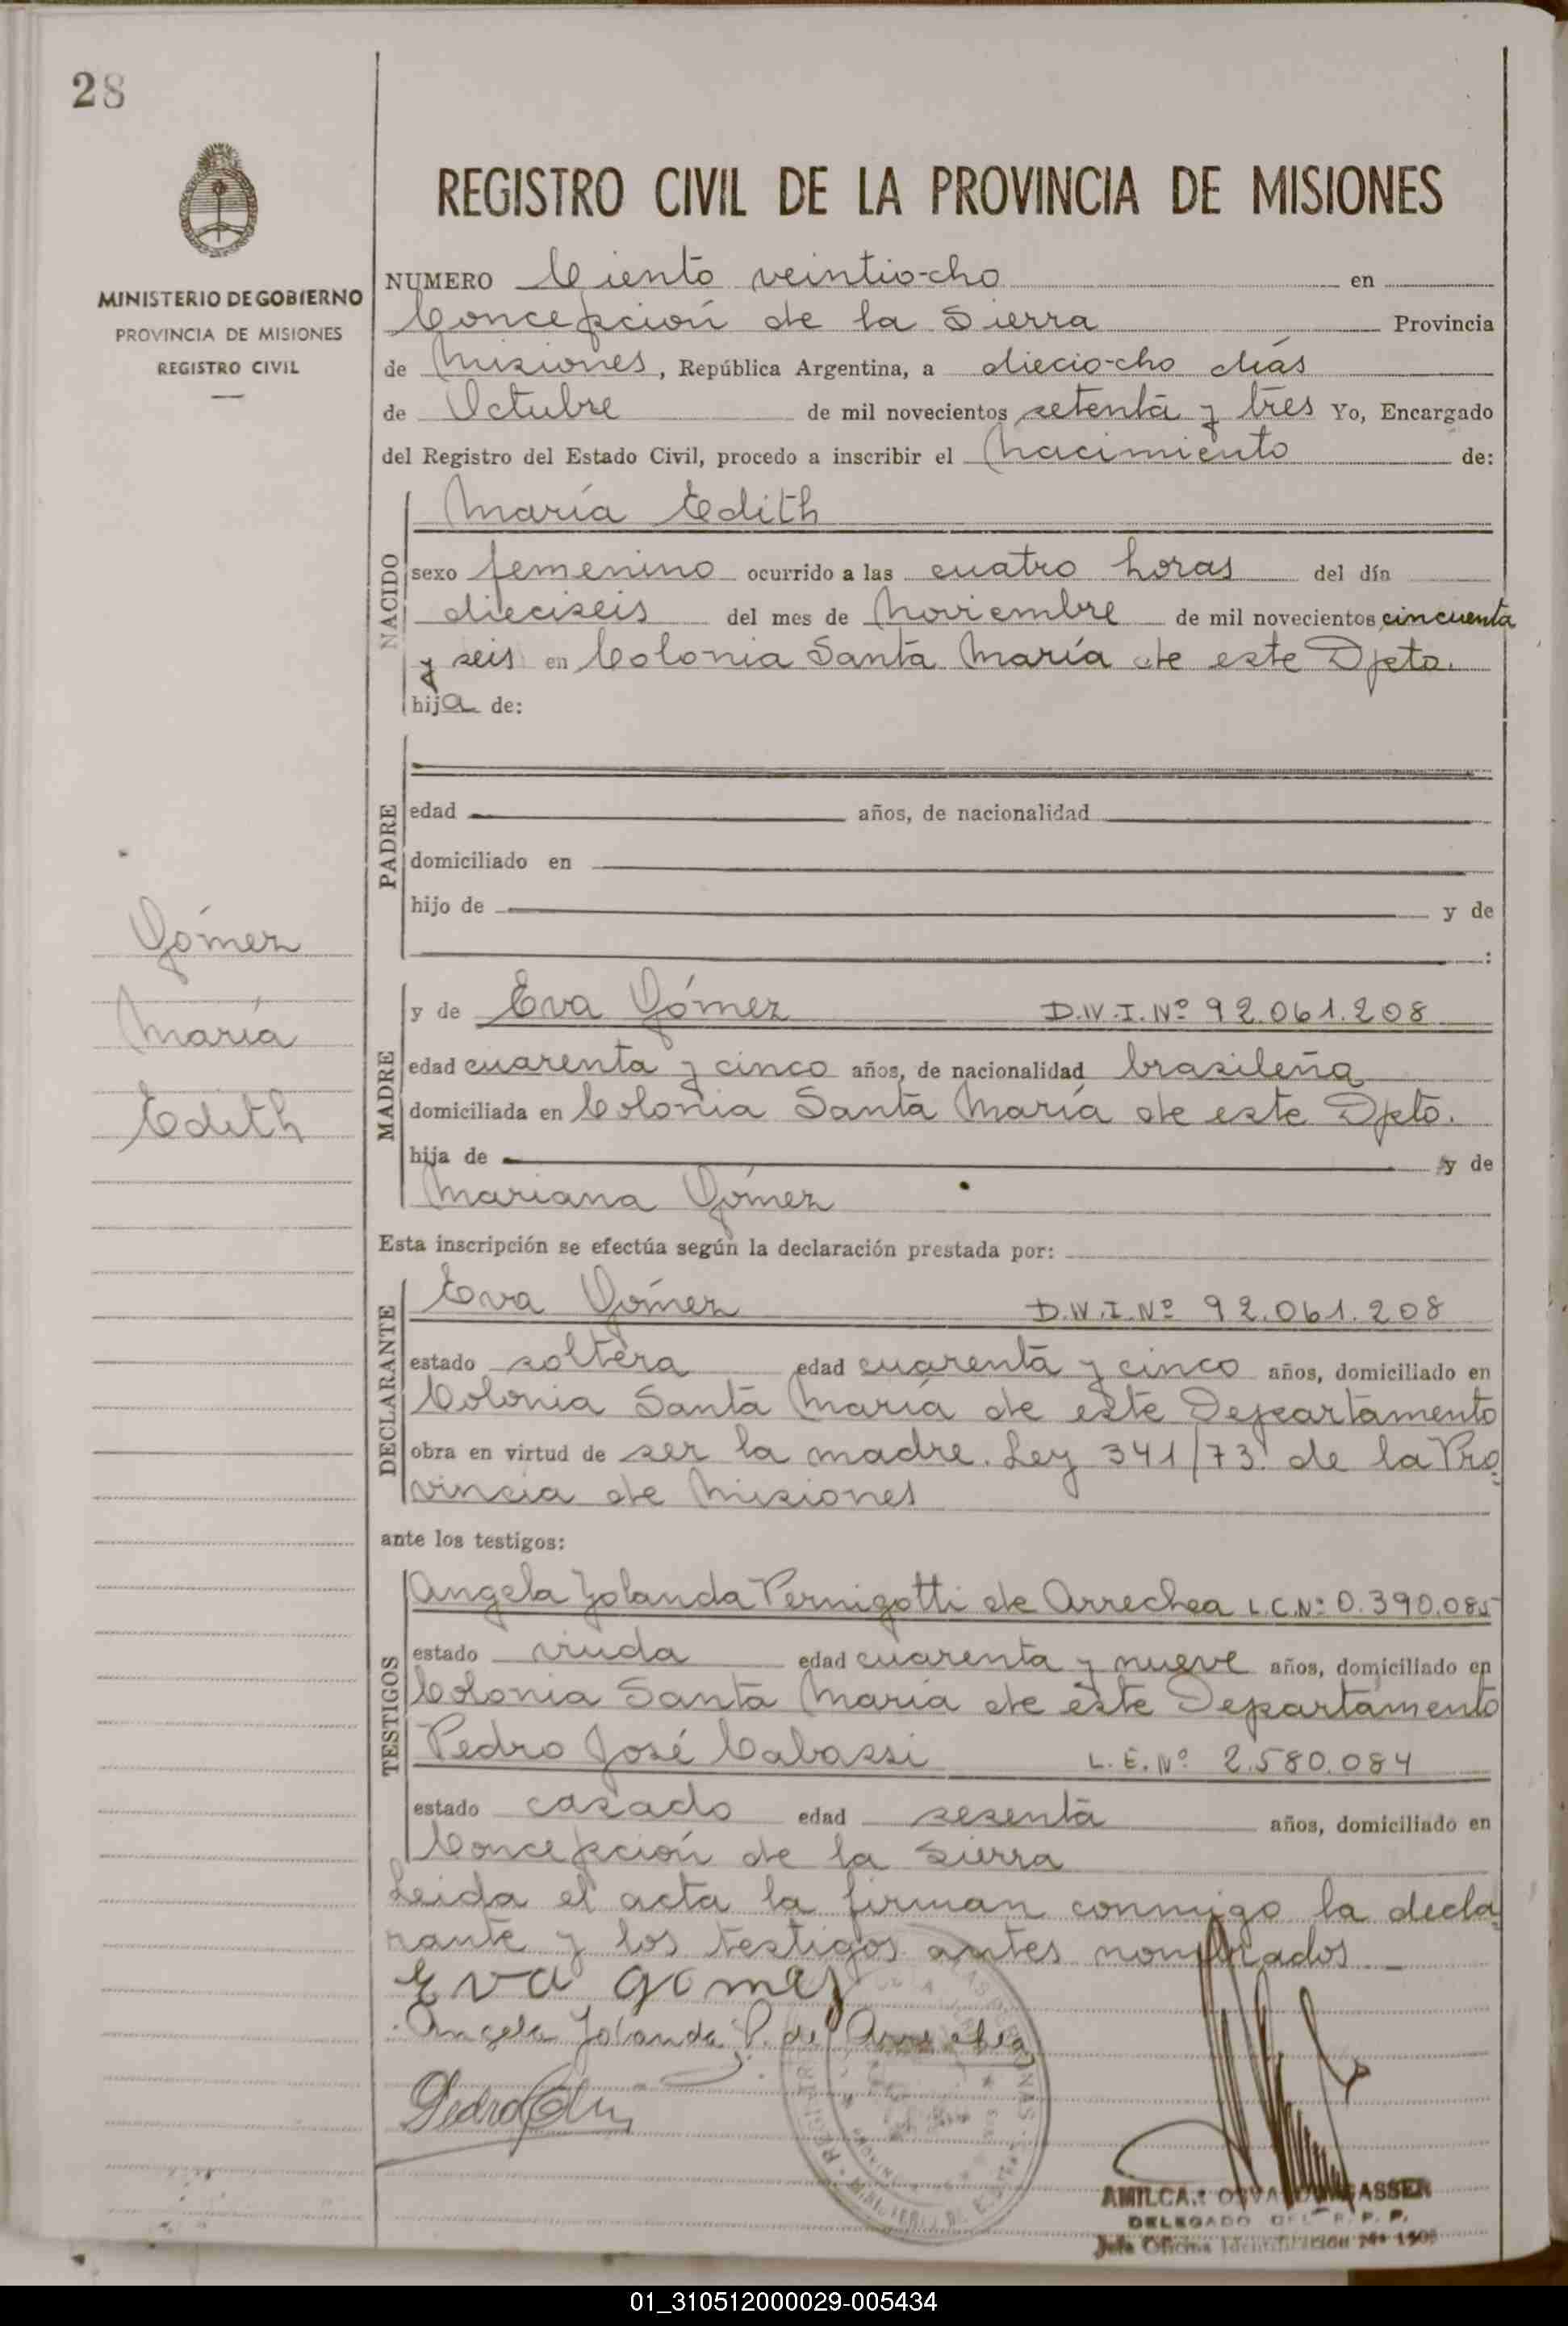 28
MINISTERIO DE GOBIERNO
PROVINCIA DE MISIONES
REGISTRO CIVIL
REGISTRO CIVIL DE LA PROVINCIA DE MISIONES
NUMERO Ciento veintiocho en
Concepción de la Sierra Provincia
de Misiones, República Argentina, a dieciocho días
de Octubre de mil novecientos setenta y tres Yo, Encargado
del Registro del Estado Civil, procedo a inscribir el Nacimiento de:
NACIDO
María Edith
sexo femenino ocurrido a las cuatro horas del día
dieciseis del mes de Noviembre de mil novecientos cincuenta
y seis en Colonia Santa María de este Dpto.
hija de:
PADRE
edad años, de nacionalidad
domiciliado en
hijo de y de
:
Gómez
María
Edith
MADRE
y de Eva Gómez D.N.I. Nº 92.061.208
edad cuarenta y cinco años, de nacionalidad brasileña
domiciliada en Colonia Santa María de este Dpto.
hija de y de
Mariana Gómez
Esta inscripción se efectúa según la declaración prestada por:
DECLARANTE
Eva Gómez D.N.I. Nº 92.061.208
estado soltera edad cuarenta y cinco años, domiciliado en
Colonia Santa María de este Departamento
obra en virtud de ser la madre. Ley 341/73 de la Pro
vincia de Misiones
ante los testigos:
TESTIGOS
Angela Yolanda Pernigotti de Arrechea L.C.Nº 0.390.085
estado viuda edad cuarenta y nueve años, domiciliado en
Colonia Santa María de este Departamento
Pedro José Cabassi L.E. Nº 2.580.084
estado casado edad sesenta años, domiciliado en
Concepción de la Sierra
Leida el acta la firman conmigo la decla
rante y los testigos antes nombrados
Eva gomez
Angela Yolanda P. de Arrechea
Pedro
DELEGADO DEL R. P. P.
Jefe Oficina Identificación Nº
01_310512000029-005434